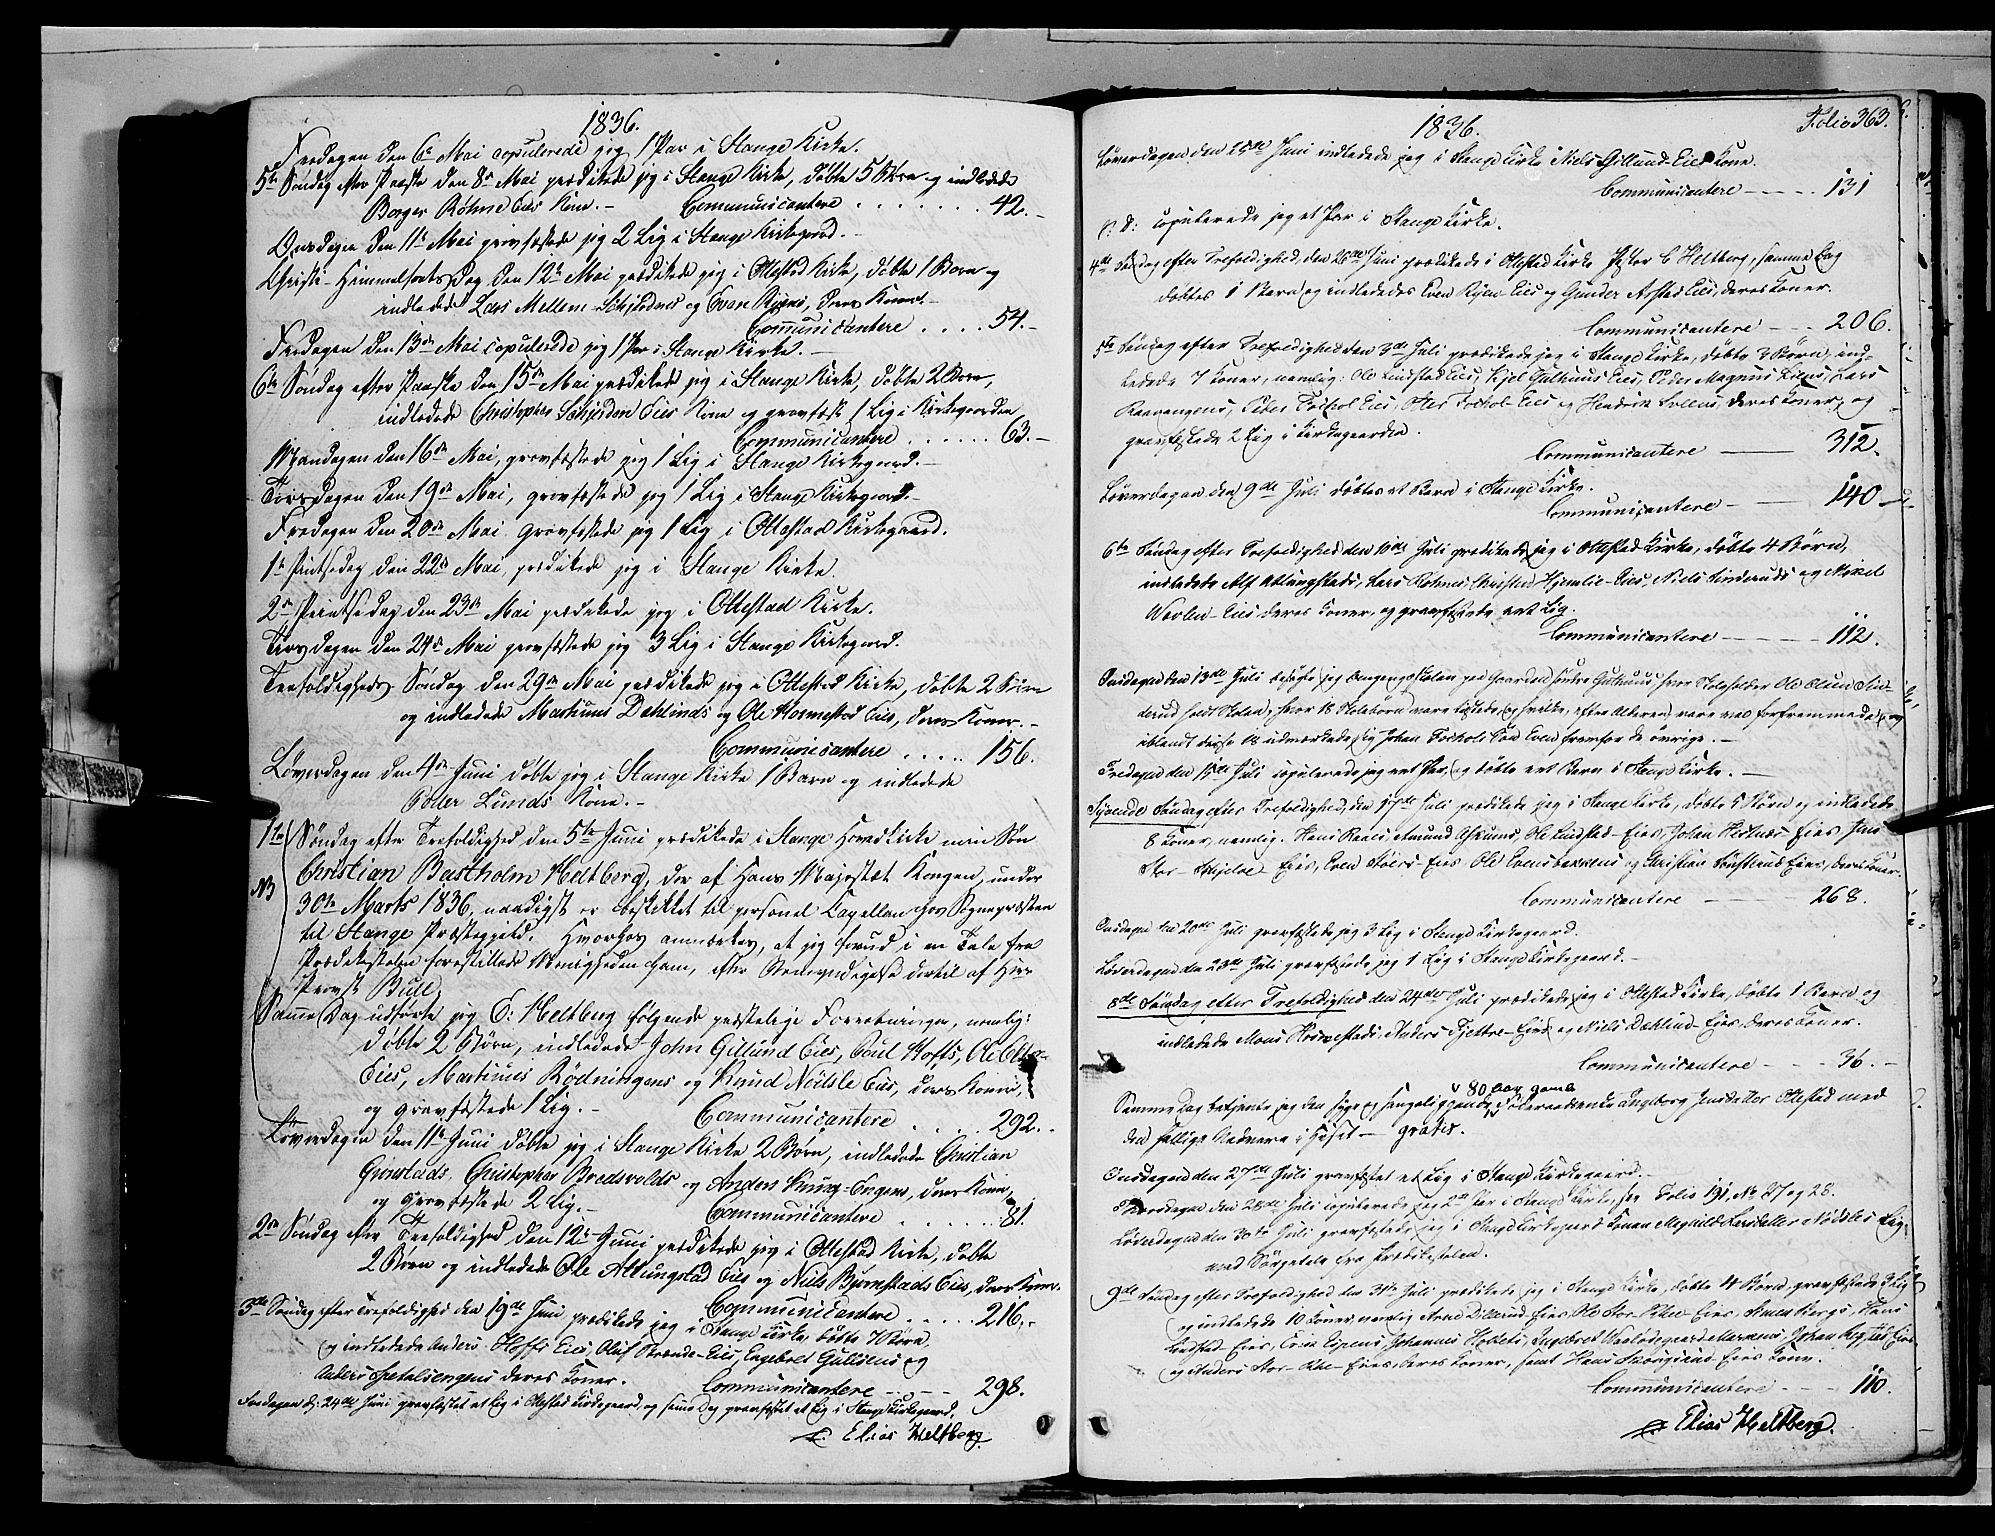 1836.
Fredagen den 6te Mai copulerede jeg 1 Par i Stange Kirke.
5te Søndag efter Paaske den 8de Mai prædikede jeg i Stange Kirke, døbte 5 Børn og indledede
Borger Røhne Eies Kone. - Communicantere . . . . . . . 42. -
Onsdagen den 11te Mai gravfæstede jeg 2 Lig i Stange Kirkegaard. -
Christi-Himmelfarts Dag den 12te Mai prædikede jeg i Ottestad Kirke, døbte 1 Barn og
indledede Lars Mellem- og Evan Ryens, deres Koner. -
Communicantere . . . . 54. -
Fredagen den 13de Mai copulerede jeg 1 Par i Stange Kirke. -
6te Søndag efter Paaske den 15de Mai prædikede jeg i Stange Kirke, døbte 2 Børn,
indledede Christopher Eies Kone og gravfæstede 1 Lig i Kirkegaarden
Communicantere . . . . . . 63. -
Mandagen den 16de Mai, gravfæstede jeg 1 Lig i Stange Kirkegaard. -
Torsdagen den 19de Mai, gravfæstede jeg 1 Lig i Stange Kirkegaard. -
Fredagen den 20de Mai gravfæstede jeg 1 Lig i Ottestad Kirkegaard.
1te Pintsedag den 22de Mai, prædikede jeg i Stange Kirke.
2den Pintsedag den 23de Mai prædikede jeg i Ottestad Kirke.
Tirsdagen den 24de Mai gravfæstede jeg 3 Lig i Stange Kirkegaard.
Trefoldigheds Søndag den 29de Mai prædikede jeg i Ottestad Kirke, døbte 2 Børn
og indledede Martinus Dæhlinds og Ole Hosmestad Eies, deres Koner. -
Communicantere . . . . . 156.
Løverdagen den 4de Juni døbte jeg i Stange Kirke 1 Barn og indledede
Peder Lunds Kone. -
1te Søndag efter Trefoldighed den 5te Juni prædikede i Stange Hovedkirke min Søn
NB Christian Bastholm Heltberg, der af Hans Majestæt Kongen, under
30te Marts 1836, naadigst er beskikket til personel Capellan hos Sognepræsten
til Stange Præstegjeld. Hvorhos anmærkes, at jeg forud i en Tale fra
Prædikestolen forestillede Menigheden ham, efter Bemyndigelse dertil af Herr
Provst Bull,
Samme Dag udførte jeg E: Heltberg følgende præstelige Forretninger, nemlig:
døbte 2 Børn, indledede John Gillund Eies, Poul Hoffs, Ole
Eies, Martinus Rødningens og Knud Nøttsle Eies, deres Koner,
og gravfæstede 1 Lig. - Communicantere . . . . . 292. -
Løverdagen den 11te Juni døbte jeg i Stange Kirke 2 Børn, indledede Christian
Grimstads, Christopher Bredsvolds og Anders Kurv-Engens, deres Koner,
og gravfæstede 2 Lig. - Communicantere . . . . . . . 81.
2den Søndag efter Trefoldighed den 12te Juni prædikede jeg i Ottestad Kirke, døbte
2 Børn og indledede Ole Atlungstad Eies og Niels Bjørnstads Eies, deres Koner.
Communicantere . . . . . 216. -
3die Søndag efter Trefoldighed den 19de Juni prædikede jeg i Stange Kirke, døbte 7 Børn
og indledede Anders Hoffs Eies, Oluf Strande-Eies, Engebret Gullsens og
Anders deres Koner. Communicantere - - - - 298.
Fredagen d: 24de Juni gravfæstet et Lig i Ottestad Kirkegaard, og samme Dag gravfæstet et Lig i Stange Kirkegaard.
Elias Heltberg
1836. Folio 363.
Løverdagen den 25de Juni indledede jeg i Stange Kirke Niels Gillund-Eies Kone.
Communicantere - - - - - 131
S: D: copulerede jeg et Par i Stange Kirke.
4de Søndag efter Trefoldighed, den 26de Juni prædikede i Ottestad Kirke Pastor C Heltberg, samme Dag
døbtes 1 Barn og indlededes Even Ryen-Eies og Gunder Arstad Eies, deres Koner.
Communicantere - - - 206.
5te Søndag efter Trefoldighed den 3die Juli prædikede jeg i Stange Kirke, døbte 3 Børn, ind-
ledede 7 Koner, nemlig: Ole Lindstad Eies, Kjel Guthuus Eies, Peder Magnus Eies, Lars
Raavangens, Peder Tokhol Eies, Otter Tokhol Eies og Hendrik deres Koner, og
gravfæstede 2 Lig i Kirkegaarden.
Communicantere —— 312.
Løverdagen den 9de Juli døbtes et Barn i Stange Kirke.
Communicantere - —— 140
6te Søndag efter Trefoldighed den 10de Juli prædikede jeg i Ottestad Kirke, døbte 4 Børn,
indledede Alf Atlungstads, Lars Røhnes, Hjemlie-Eies, Niels Sinderuds og Mikel
Wæhlen-Eies deres Koner, og gravfæstede et Lig.
Communicantere - - - - - 112.
Onsdagen den 13de Juli besøgte jeg Omgangsskolen paa Gaarden søndre Guthuus, hvor Skoleholder Ole Olsen Sin-
derud holdt Skole, hvor 18 Skolebørn vare tilstede, og hvilke, efter Alderen, vare vel forfremmede, og
iblandt disse 18 udmærkede sig Johan Tokhols Søn Even fremfor de øvrige. -
Fredagen den 15de Juli copulerede jeg et Par, og døbte et Barn i Stange Kirke. -
Syvende Søndag efter Trefoldighed, den 17de Juli prædikede jeg i Stange Kirke, døbte 5 Børn og indledede
8 Koner, nemlig: Hans Amund Ole Lindstad-Eies, Johan Eies, Jens
Stor- Eies, Even Eies, Ole Evensbakkens og Christian Eies, deres Koner.
Communicantere - - - - - 268.
Onsdagen den 20de Juli gravfæstede jeg 3 Lig i Stange Kirkegaard.
Løverdagen den 23de Juli gravfæstede jeg 1 Lig i Stange Kirkegaard. -
8de Søndag efter Trefoldighed den 24de Juli prædikede jeg i Ottestad Kirke, døbte 1 Barn og
indledede Mons Hosmestads, Anders Tjettre-Eies, og Niels Dæhlind-Eies, deres Koner.
Communicantere - - - 36. -
Samme Dag betjente jeg den syge og sengeliggende, 80 Aar gamle Ingeborg Jensdatter Ottestad med
den hellige Nadvere i Huset — gratis.
Onsdagen den 27de Juli gravfæstet et Lig i Stange Kirkegaard. -
Torsdagen den 28de Juli copulerede jeg 2de Par i Stange Kirke, see Folio 191, No 27 og 28.
Løverdagen den 30te Juli gravfæstede jeg i Stange Kirkegaard Konen Larsdatter Nøttsles Lig,
med Sørgetale fra Prædikestolen.
9de Søndag efter Trefoldighed den 31te Juli prædikede jeg i Stange Kirke, døbte 4 Børn, gravfæstede 3 Lig
og indledede 10 Koner, nemlig Arne Eies, Ole Stor Eies, Hans
Lindstad-Eies, Johannes Ingebret Johan Eies
og Anders Stor- Eies deres Koner, samt Hans Eies Kone.
Communicantere - - - 110.
Elias Heltberg.